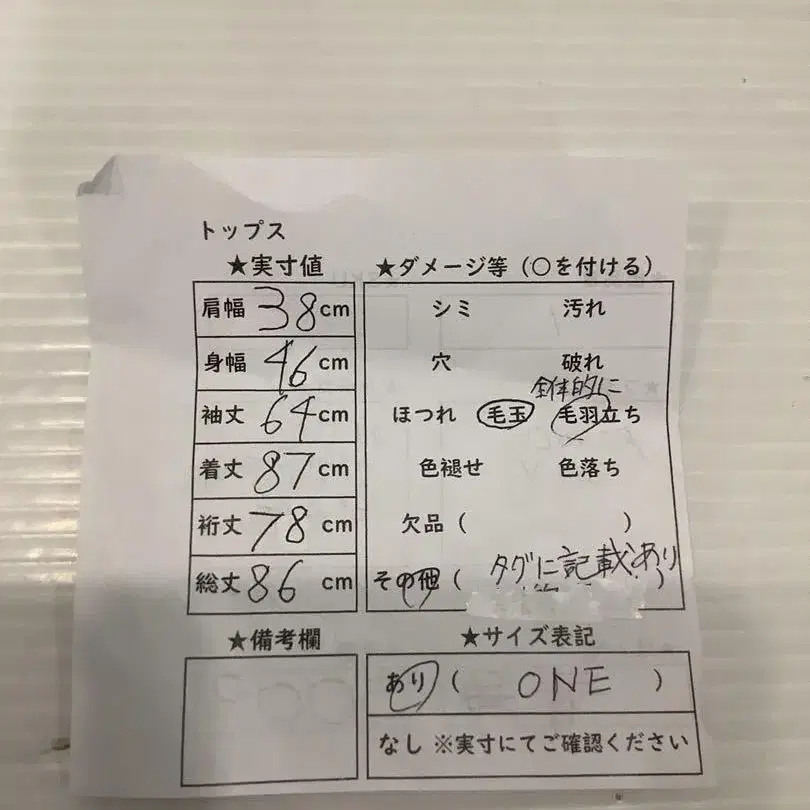 トップス
★実寸値
肩幅 38 cm
身幅 46 cm
袖丈 64 cm
着丈 87 cm
裄丈 78 cm
総丈 86 cm
★ダメージ等（〇を付ける）
シミ 汚れ
穴 破れ
全体的に
ほつれ 毛玉 毛羽立ち
色褪せ 色落ち
欠品（ ）
その他（ タグに記載あり ）
★備考欄
★サイズ表記
あり（ ONE ）
なし ※実寸にてご確認ください